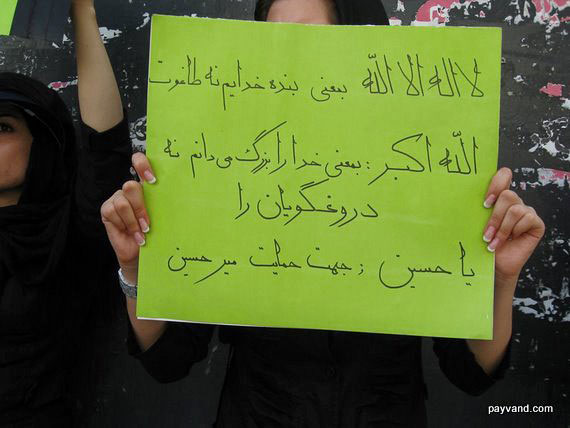 لا اله الا الله بمعنی بنده خدایم نه طاغوت
الله اکبر : بمعنی خدا را بزرگ می دانم نه
دروغگویان را
یا حسین ; جهت حمایت میرحسین
payvand.com